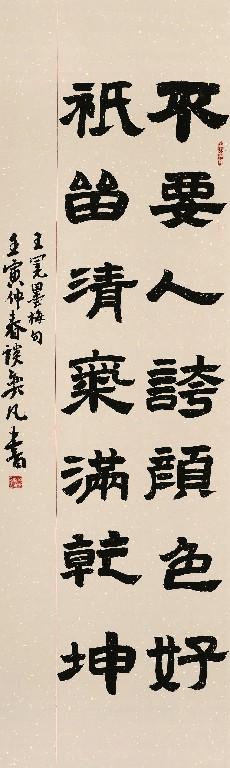 不要人誇顔色好
衹畄清氣滿乾坤
王冕墨梅句
壬寅仲春談奕凡書